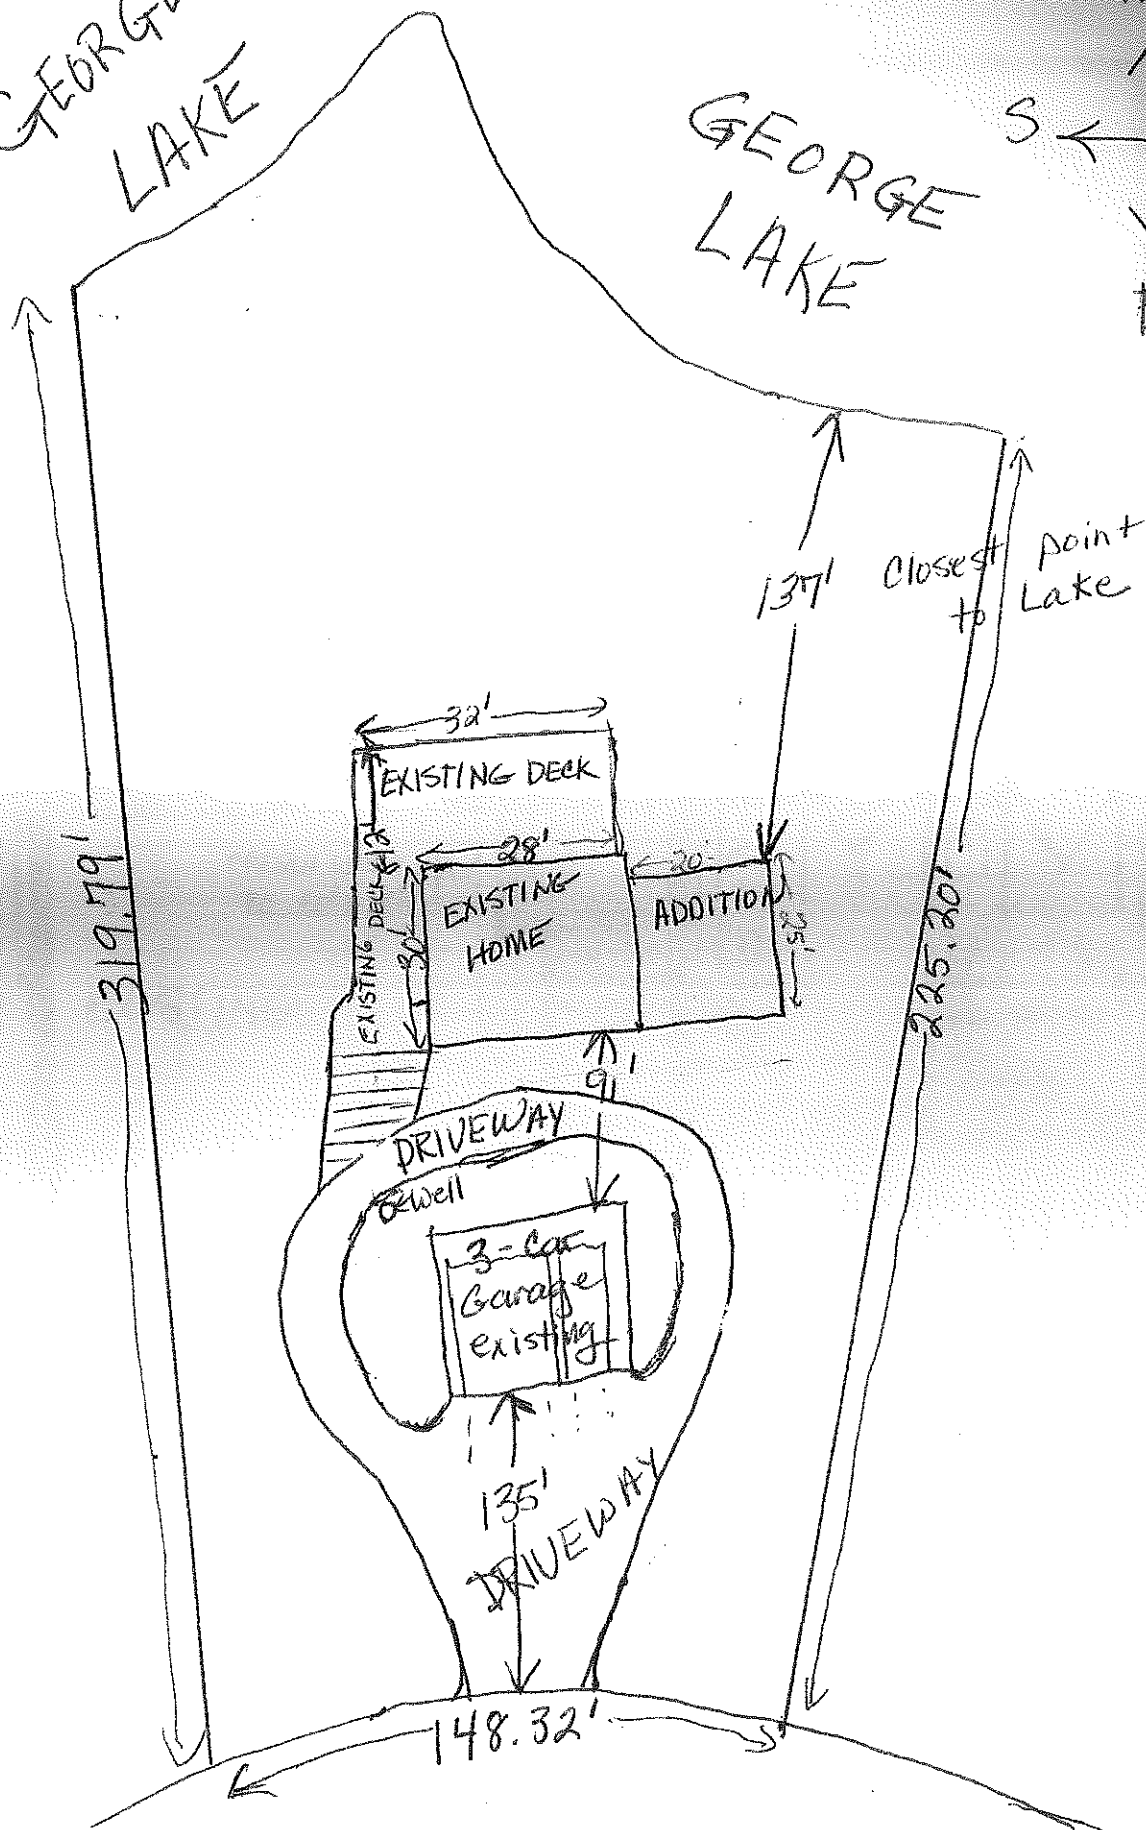 GEORGE
LAKE
GEORGE
LAKE
S
137'
Closest point
to Lake
32'
EXISTING DECK
12'
28'
20'
EXISTING DECK
30'
EXISTING
HOME
ADDITION
25'
319.79'
225.20'
9'
DRIVEWAY
Well
3-Car
Garage
existing
135'
DRIVEWAY
148.32'